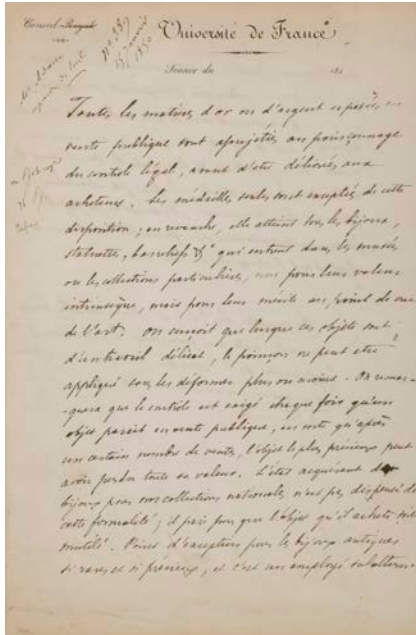 Conseil-Royal
Université de France
Séance du 184
N° 2387
15 Janvier
1850
Toutes les matières d'or ou d'argent exposées en
vente publique sont assujetties au poinçonnage
du contrôle légal, avant d'être délivrées aux
acheteurs. Les médailles seules sont exceptées de cette
disposition; en revanche, elle atteint tous les bijoux,
statuettes, bas-reliefs &ª qui entrent dans les musées
ou les collections particulières, non pour leur valeur
intrinsèque, mais pour leur mérite au point de vue
de l'art. On conçoit que lorsque ces objets sont
d'un travail délicat, le poinçon ne peut être
appliqué sans les déformer plus ou moins. On remar-
-quera que le contrôle est exigé chaque fois qu'un
objet paraît en vente publique, en sorte qu'après
un certain nombre de ventes, l'objet le plus précieux peut
avoir perdu toute sa valeur. L'état acquérant des
bijoux pour nos collections nationales n'est pas dispensé de
cette formalité; il paie pour que l'objet qu'il achète soit
mutilé. Point d'exception pour les bijoux antiques
si rares et si précieux, et c'est un employé subalterne